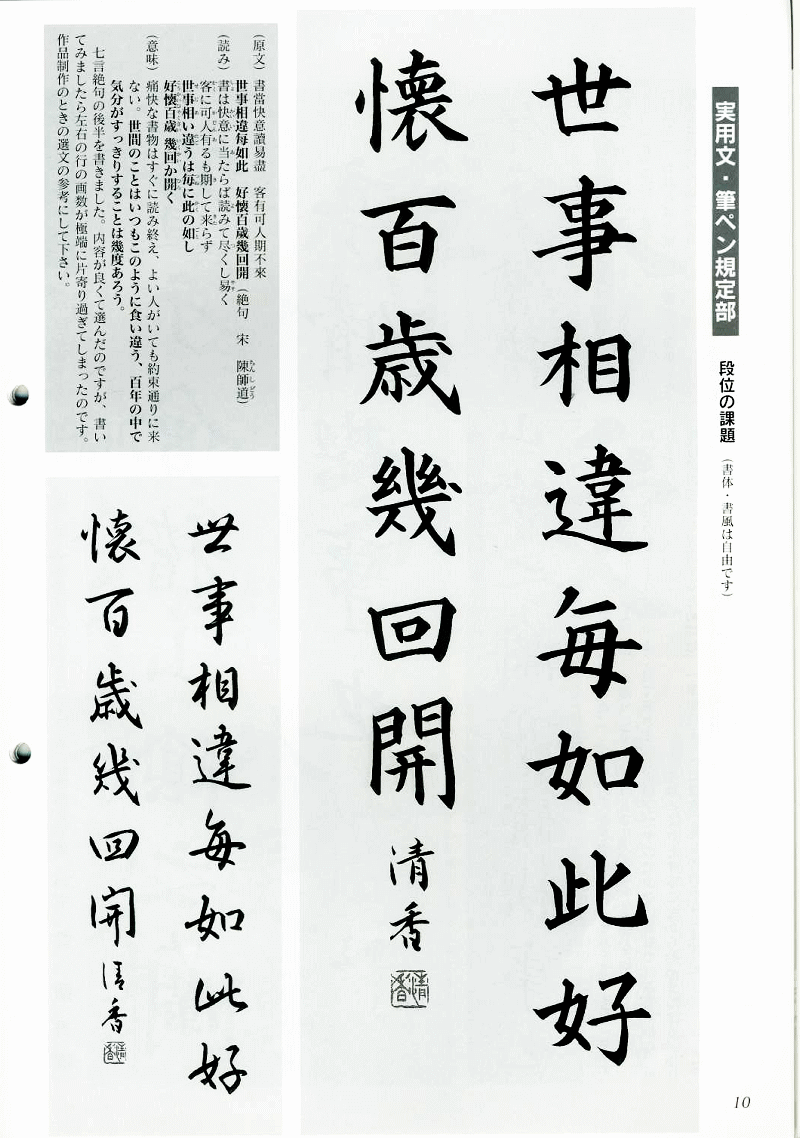 実用文・筆ペン規定部
段位の課題
（書体・書風は自由です）
世事相違毎如此好
懐百歳幾回開
清香
清香
（原文）　書當快意讀易盡　客有可人期不來
世事相違每如此　好懐百歳幾回開（絶句　宋　陳師道）
ちんしどう
（読み）書は快意に当たらば読みて尽くし易く
客に可人有るも期して来らず
世事相い違うは毎に此の如し
好懐百歳　幾回か開く
（意味）　痛快な書物はすぐに読み終え、よい人がいても約束通りに来
ない。世間のことはいつもこのように食い違う、百年の中で
気分がすっきりすることは幾度あろう。
七言絶句の後半を書きました。内容が良くて選んだのですが、書い
てみましたら左右の行の画数が極端に片寄り過ぎてしまったのです。
作品制作のときの選文の参考にして下さい。
世事相違毎如此好
懐百歳幾回開
清香
清香
10